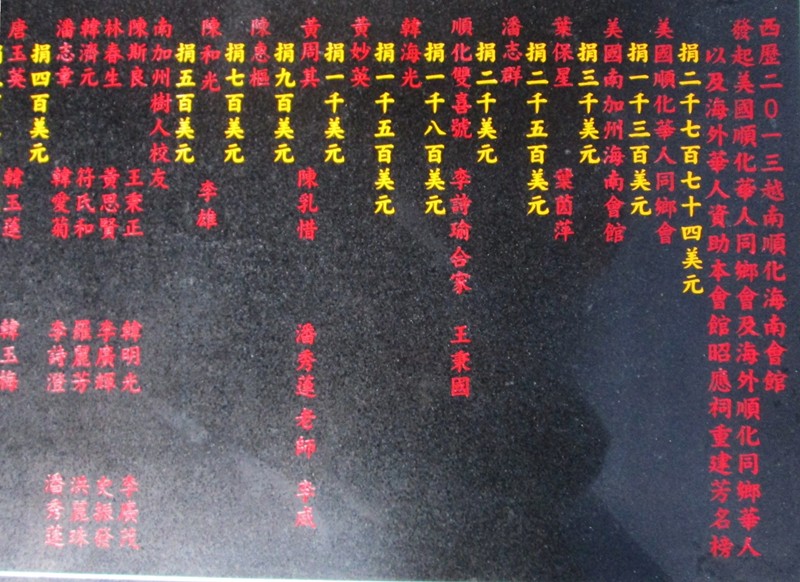 西歷二0一三越南順化海南會館
發起美國順化華人同鄉會及海外順化同鄉華人
以及海外華人資助本會館昭應祠重建芳名榜
捐二千七百七十四美元
美國順化華人同鄉會
捐一千三百美元
美國南加州海南會館
捐三千美元
葉保星 葉茵萍
捐二千五百美元
潘志群
捐二千美元
順化雙喜號 李詩瑜合家 王秉國
捐一千八百美元
韓海光
捐一千五百美元
黃妙英
捐一千美元
黃周其 陳乳惜 潘秀蓮老師 李威
捐九百美元
陳惠樞
捐七百美元
陳和光 李雄
捐五百美元
南加州樹人校友
陳斯良 王秉正 韓明光 李廣茂
林春生 黃思賢 李廣輝 史振發
韓濟元 符氏和 羅麗芳 洪麗珠
潘志章 韓愛菊 李詩澧 潘秀蓮
捐四百美元
唐玉英 韓玉蓮 韓玉梅